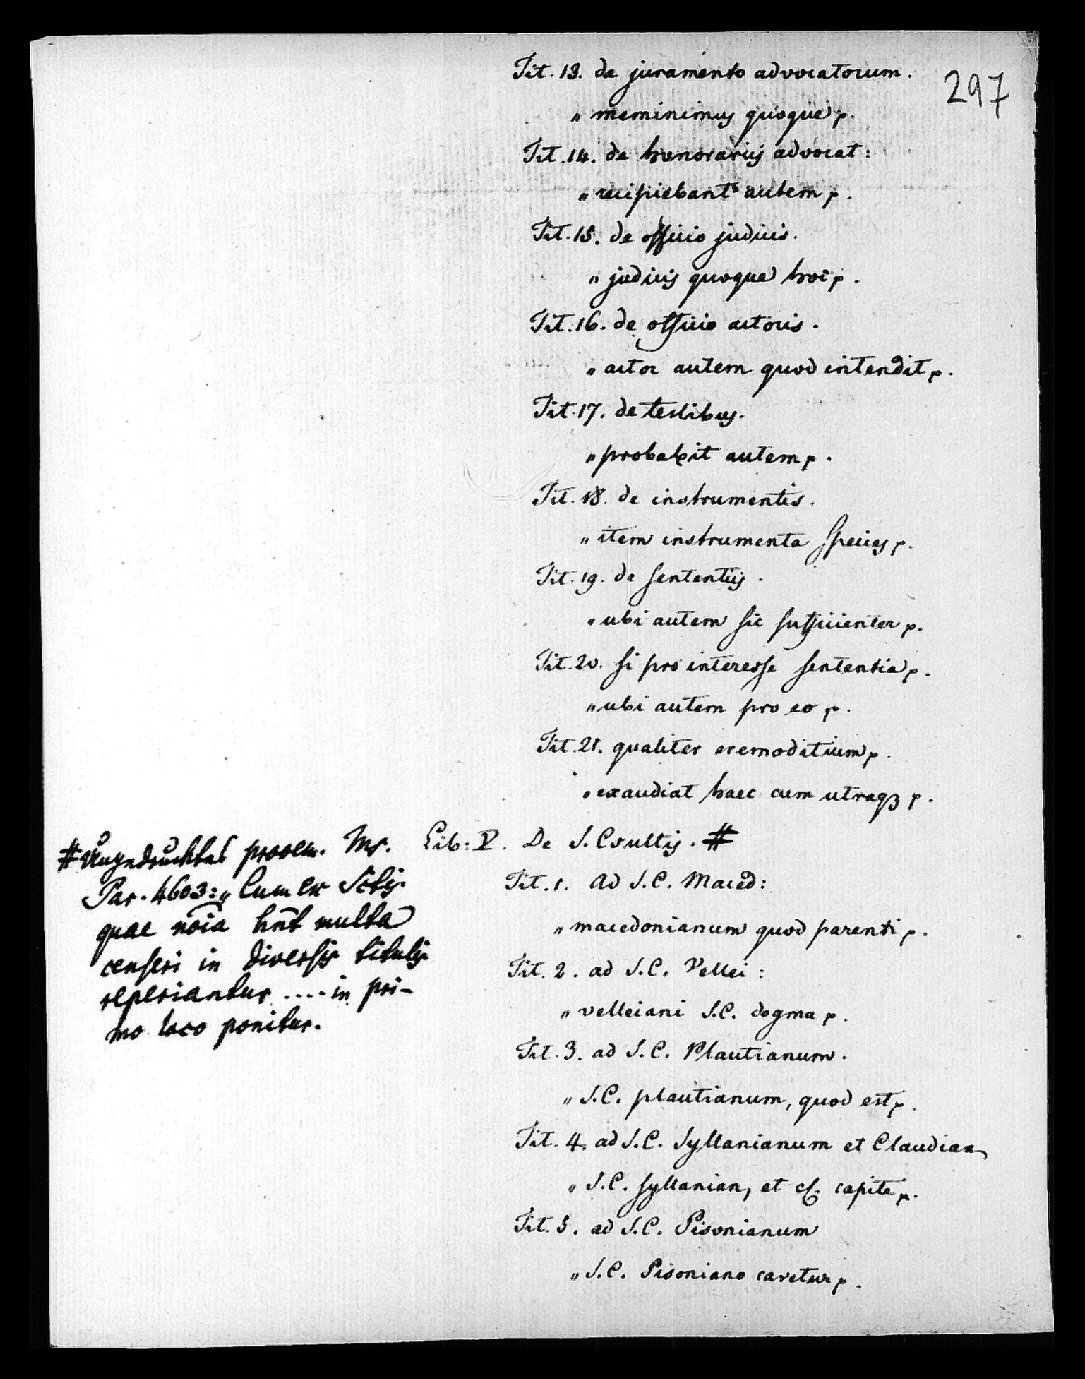 297
Tit. 13. de juramento advocatorum.
„ meminimus quoque p.
Tit. 14. de honorariis advocat:
„ recipiebant autem p.
Tit. 15. de officio judicis.
„ judicis quoque hoc p.
Tit. 16. de officio actoris.
„ actor autem quod intendit p.
Tit. 17. de testibus.
„ probabit autem p.
Tit. 18. de instrumentis.
„ item instrumenta species p.
Tit. 19. de sententiis.
„ ubi autem sic sufficienter p.
Tit. 20. si pro interesse sententia p.
„ ubi autem pro eo p.
Tit. 21. qualiter eremoditium p.
„ exaudiat haec cum utraq3 p.
Lib: V. De S. Csultis. #
Tit. 1. Ad S.C. Maced:
„ macedonianum quod parenti p.
Tit. 2. ad S.C. Vellei:
„ velleiani S.C. dogma p.
Tit. 3. ad S.C. Plautianum.
„ S.C. plautianum, quod est p.
Tit. 4. ad S.C. Syllanianum et Claudian,
„ S.C. syllanian, et cf. capite p.
Tit. 5. ad S.C. Pisonianum
„ S.C. Pisoniano cavetur p.
# Ungedrucktes prooem. Ms.
Par. 4603: „ Cum ex Sctis
quae noia hnt multa
censeri in diversis titulis
reperiantur .... in pri-
mo loco ponitur.